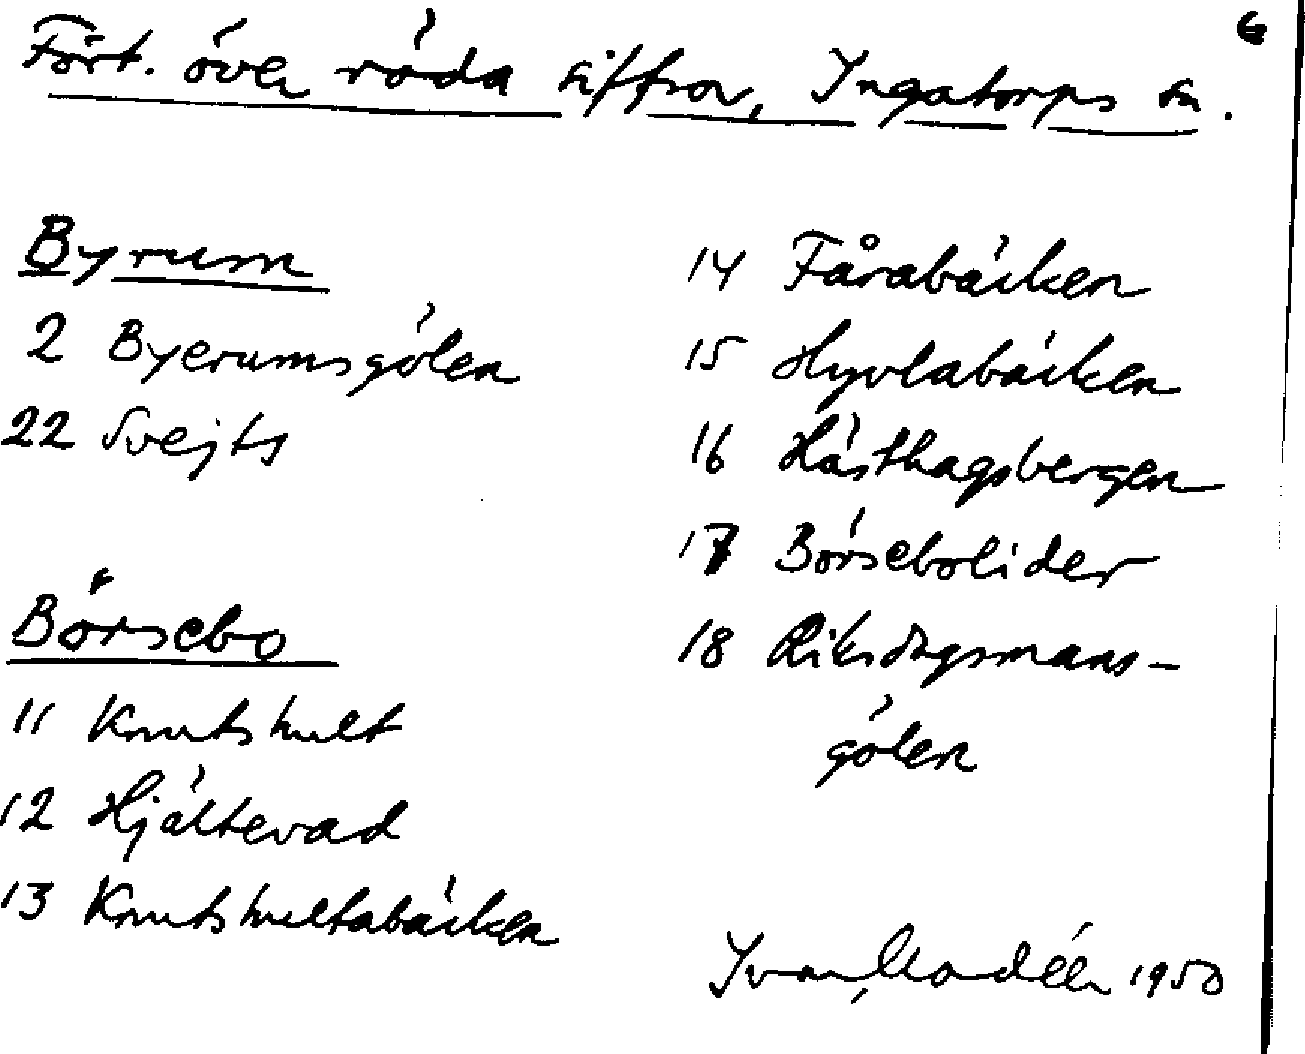 6
Fört. över röda siffror, Ingatorps sn.
Byrum
2 Byerumsgölen
22 Svejts
Börsebo
11 Knutshult
12 Hjältevad
13 Knutshultabäcken
14 Fårabäcken
15 Hyvlabäcken
16 Hästhagsbergen
17 Börsebolider
18 Riksdagsmans-
gölen
Yvan Modéer 1950